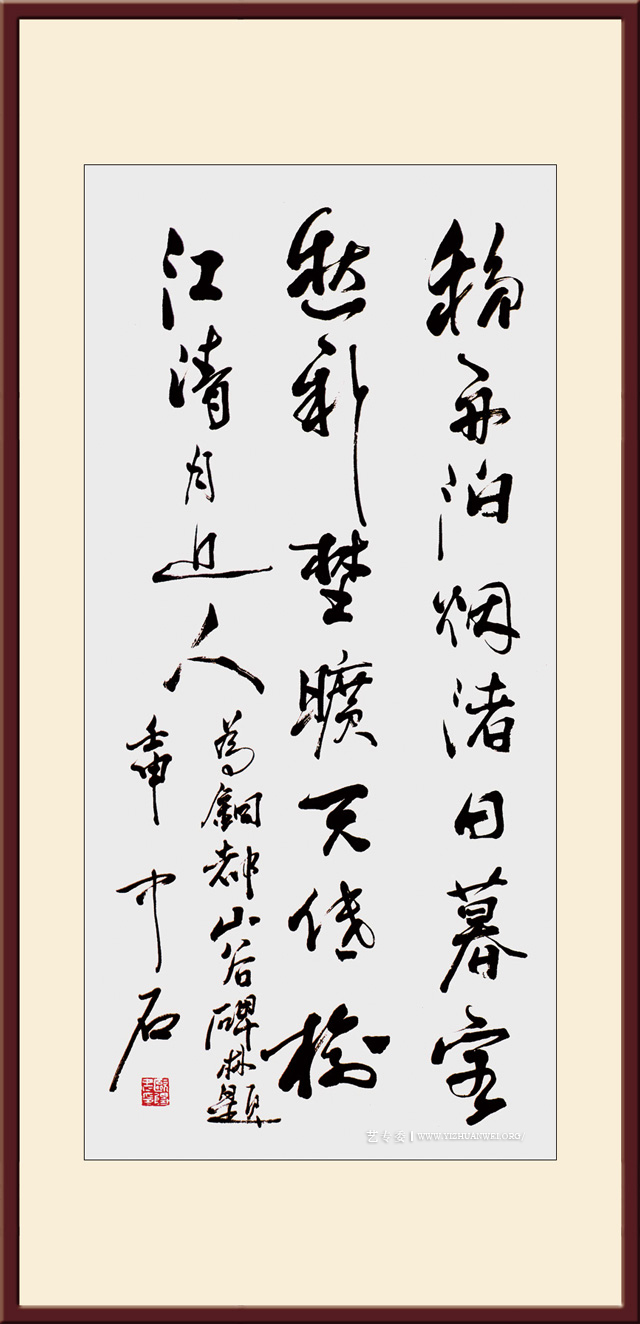 移舟泊烟渚日暮客
愁新埜曠天低樹
江清月近人
為銅都山谷碑林題
壬申 中石
艺专委 | WWW.YIZHUANWEI.ORG